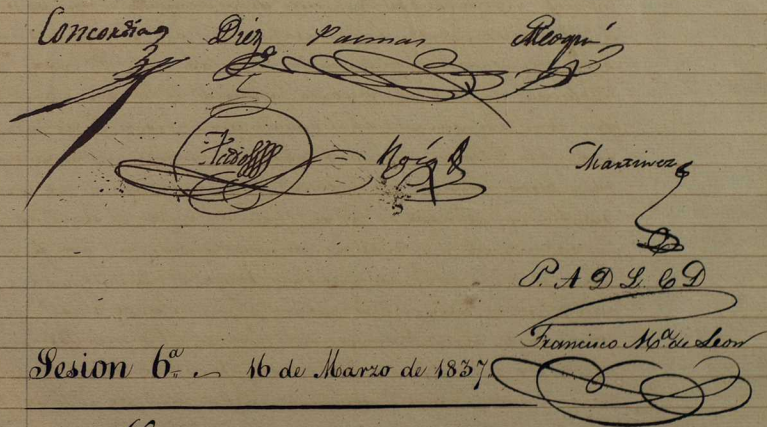 Concordia Diez Palmas Meoqui
Martinez
P. A D L C D
Francisco Mª. de Leon
Sesion 6ª. 16 de Marzo de 1837.